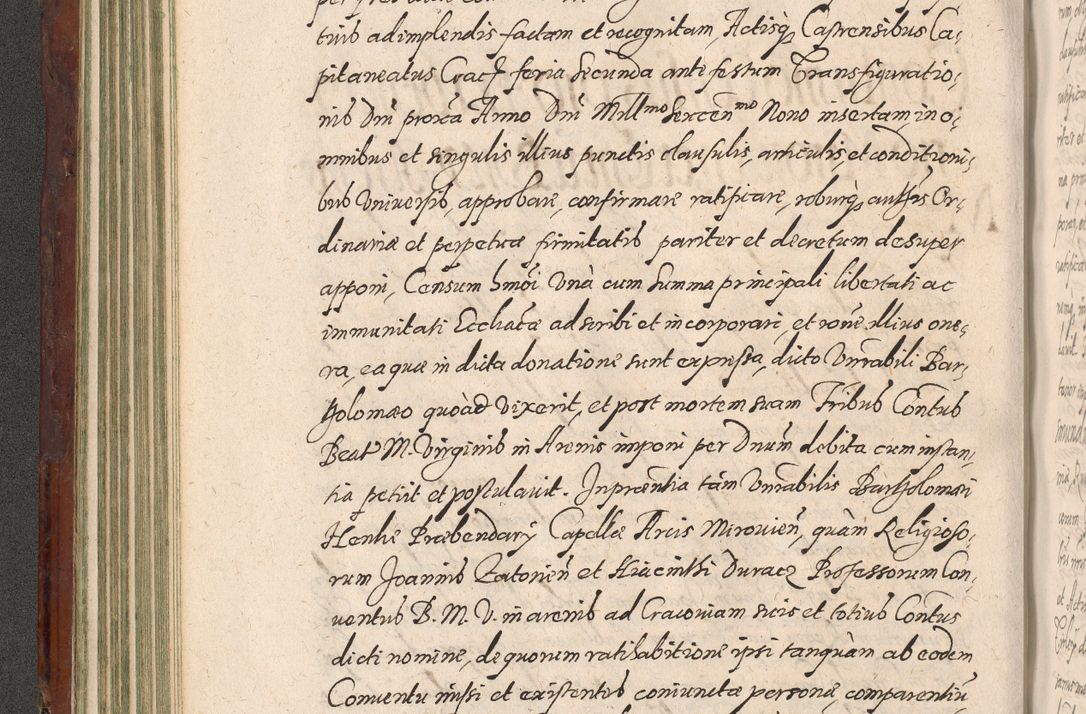 tuis adimplendis factam et recognitam, Actisq; Castrensibus Ca,
pitaneatus Cracȝ feria secunda ante festum Transfiguratio,
nis Dni proxa Anno Dni Mill͞mo Sexcen͞mo Nono insertam, in o,
mnibus et singulis illius punctis clausulis, articulis, et conditioni,
bus Vniuersis, approbare, confirmare ratificare, roburq; authis Or,
dinariæ et perpetuæ firmitatis pariter et decretum desuper
apponi, Censum hmoi Vnà cum summa principali libertati ac
immunitati Ecclicæ adscribi et incorporari, et rone illius one,
ra, ea quæ in dicta donatione sunt expressa, dicto Vnrabili Bar,
tholomæo quoàd vixerit, et post mortem suam Fribus Contus
Beat M. Virginis in Arenis imponi per Dnum debita cum instan,
tia petiit et postulauit. In præntia tam Vnrabilis Bartholomæi
Henlie Præbendarij Capellæ Arcis Mirouien, quàm Religioso,
rum Joannis Zatorien et Hiacinthi Duracz Professorum Con,
uentus B. M. V. in arenis ad Cracouiam suis et totius Contus
dicti nomine, de quorum ratihabitione ipsi tanquàm ab eodem
Conuentu missi et existentes coniunctæ personæ comparentiu